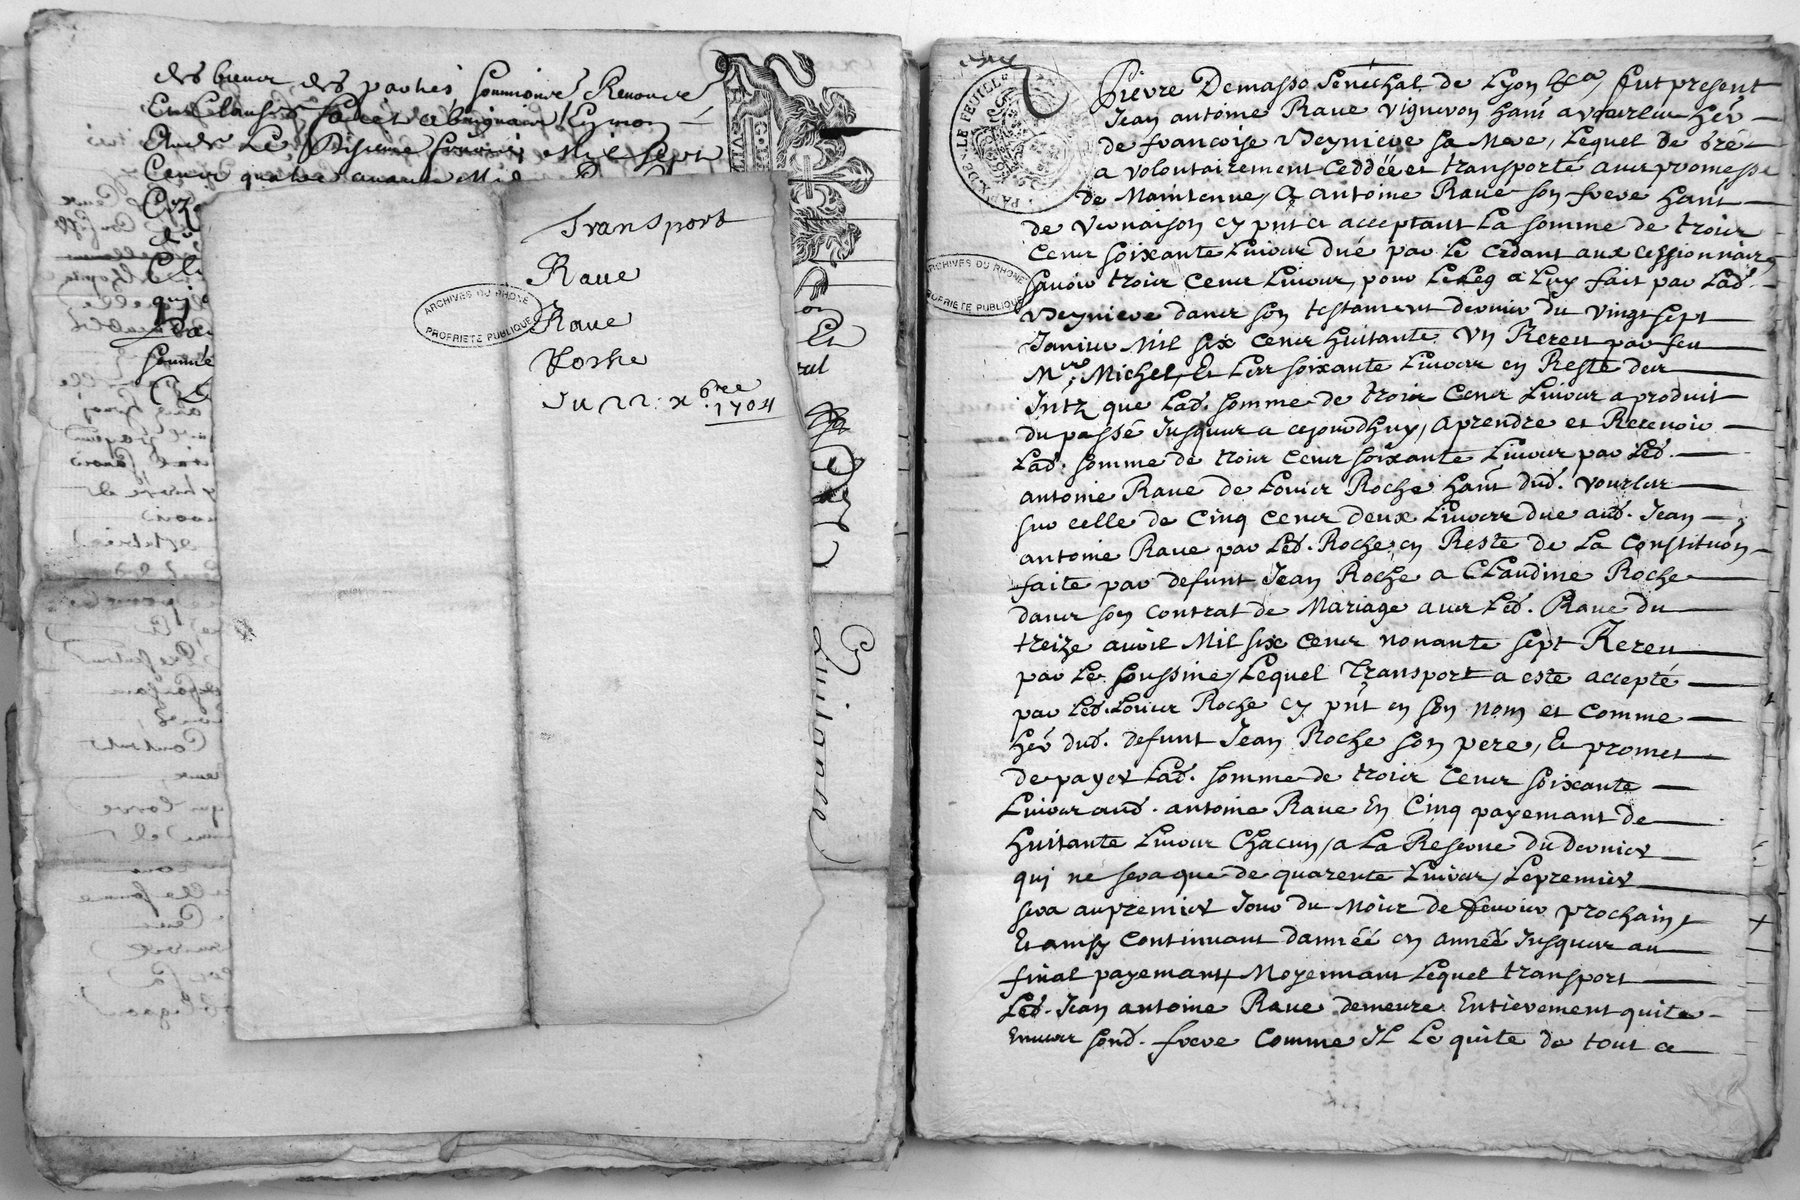 des biens des parties soumionς Renonce
Et Clauses faict et
Le Disieme feuvrier Mil sept
Cens quatre
Transport
Raue
Raue
Roche
Du 22. xbre
1704
ARCHIVES DU RHONE
PROPRIETE PUBLIQUE
Quitance
LE FEUILLE
ARCHIVES DU RHONE
PROPRIETE PUBLIQUE
Pierre Demasso Senechal de Lyon &ca, fut present
Jean antoine Raue vigneron hant a vourleu hér
de francoise Veyniere sa Mere, Lequel de gré
a volontairement Ceddée et transporté auec promesse
de Maintenue, a antoine Raue son frere hant
de Vernaison cy pnt et acceptant La somme de trois
Cens soixante Liures düe par Le Cedant aux Cessionnaire
sauoir trois Cens Liures, pour Le Leg a Luy fait par Lad.
Veyniere dans son testament dernier du vingt sept
Januier Mil six Cens huitante Un Receu par feu
Mre. Michel, Et Les soixante Liures en Reste des
Intz que Lad. somme de trois Cens Liures a produit
du passé Jusques a cejourd'huy, a prendre et Receuoir
Lad. somme de trois Cens soixante Liures par Led.
antoine Raue de Louis Roche hant dud. vourles
sur celle de Cinq Cens deux Liures due aud. Jean
antoine Raue par Led. Roche en Reste de La Constituon
faite par defunt Jean Roche a Claudine Roche
dans son Contrat de Mariage auec Led. Raue du
treize auril Mil six Cens nonante sept Receu
par Le soussine, Lequel Transport a este accepté
par Led. Louis Roche cy pnt en son nom et Comme
hér dud. defunt Jean Roche son pere, Et promet
de payer Lad. somme de trois Cens soixante
Liures aud. antoine Raue En Cinq payemant de
huitante Liures Chacun, a La Reserue du dernier
qui ne sera que de quarente Liures, Le premier
sera au premier Jour du Mois de feurier prochain,
Et ainsy Continuant d'année en année Jusques au
final payemant, Moyennant Lequel transport
Led. Jean antoine Raue demeure Entierement quite
Enuers sond. frere Comme Il Le quite de tout ce